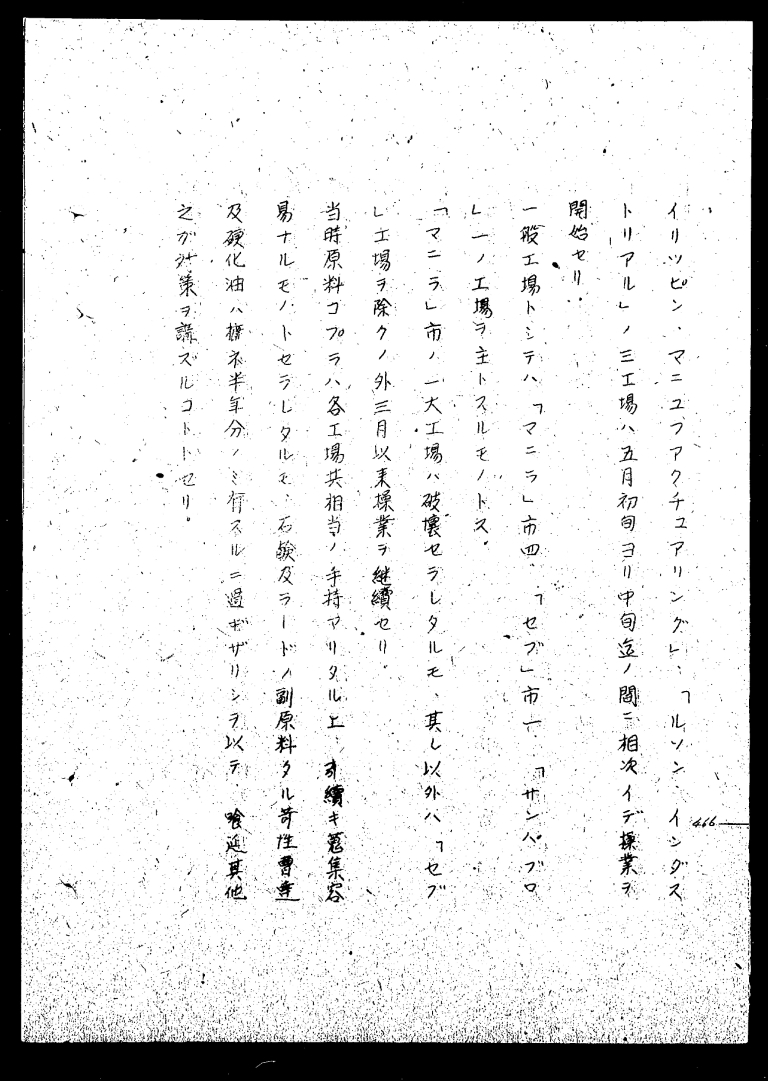 イリツピン、マニユフアクチユアリング」、「ルソン インダス
トリアル」ノ三工場ハ五月初旬ヨリ中旬迄ノ間ニ相次イデ操業ヲ
開始セリ.
一般工場トシテハ「マニラ」市四、「セブ」市一、「サンパブロ
」一ノ工場ヲ主トスルモノトス.
「マニラ」市ノ一大工場ハ破壊セラレタルモ、其レ以外ハ「セブ
」工場ヲ除クノ外三月以来操業ヲ継續セリ.
当時原料コプラハ各工場共相当ノ手持アリタル上、引續キ蒐集容
易ナルモノトセラレタルモ、石鹸及ラードノ副原料タル苛性曹達
及硬化油ハ概ネ半年分ノミ存スルニ過ギザリシヲ以テ 其他
之ガ対策ヲ講ズルコトトセリ。
466